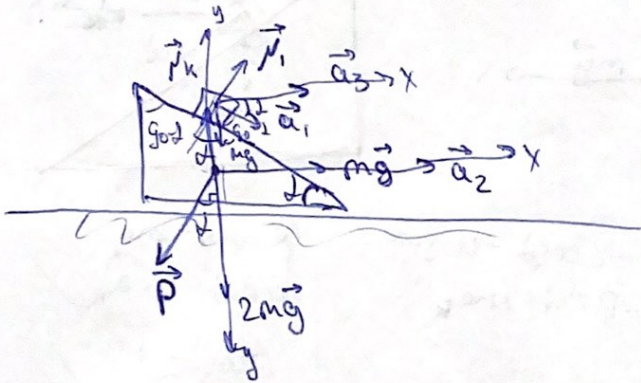 y
N⃗к N⃗₁
a⃗₃ x
a⃗₁
90-α
mg
α
mg⃗ a⃗₂ x
α
α
P⃗
2mg⃗
y